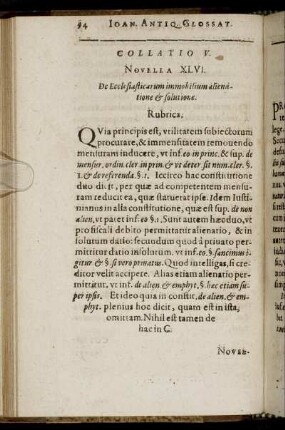 94 IOAN. ANTIQ. GLOSSAT.
COLLATIO V.
NOVELLA XLVI.
De Ecclesiasticarum immobilium aliena-
tione & solutione.
Rubrica.
QVia principis est, vtilitatem subiectorum
procurare, & immensitatem remouendo
mensuram inducere, vt inf. eo in princ. & sup. de
mensur. ordin. cler in prin. & vt deter sit num. cler. §.
1. & de referenda. §. 1. Iccirco hac constitutione
duo dicit, per quæ ad competentem mensu-
ram reducit ea, quæ statuerat ipse. Idem Iustinianus
in alia constitutione, quæ est sup. de non
alien. vt patet inf. eo §. 1. Sunt autem hæc duo, vt
pro fiscali debito permittatur alienatio, & in
solutum datio: secundum quod à priuato per-
mittitur datio in solutum. vt inf. eo §. sancimus i-
gitur & §. si vero promatus. Quod intelligas, si cre-
ditor velit accipere. Alias etiam alienatio per-
mittitur. vt inf. de alien. & emphyt. §. hæc etiam su-
per ipsis. Et ideo quia in constit. de alien. & em-
phyt. plenius hoc dicit, quato est in ista,
omittam. Nihil est tamen de
hac in C.
NOVEL-